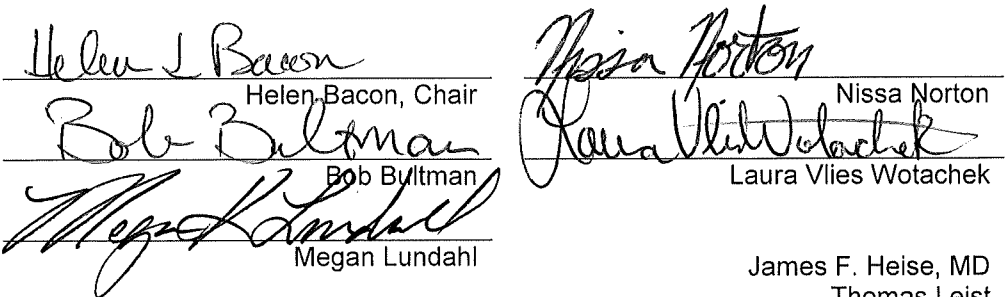 Helen J Bacon
Helen Bacon, Chair
Bob Bultman
Bob Bultman
Megan K Lundahl
Megan Lundahl
Nissa Norton
Nissa Norton
Laura Vlies Wotachek
Laura Vlies Wotachek
James F. Heise, MD
Thomas Leist